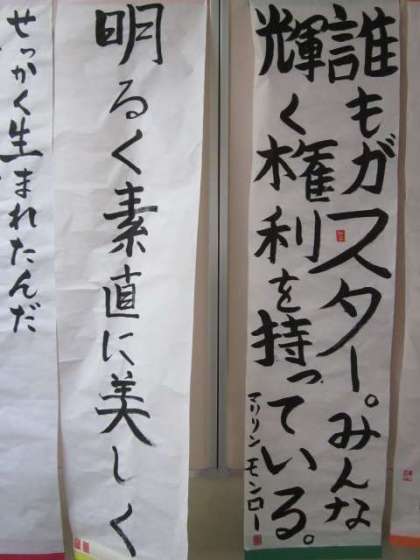 誰もガスター。みんな
輝く権利を持っている。
マリリン モンロー
明るく素直に美しく
せっかく生まれたんだ